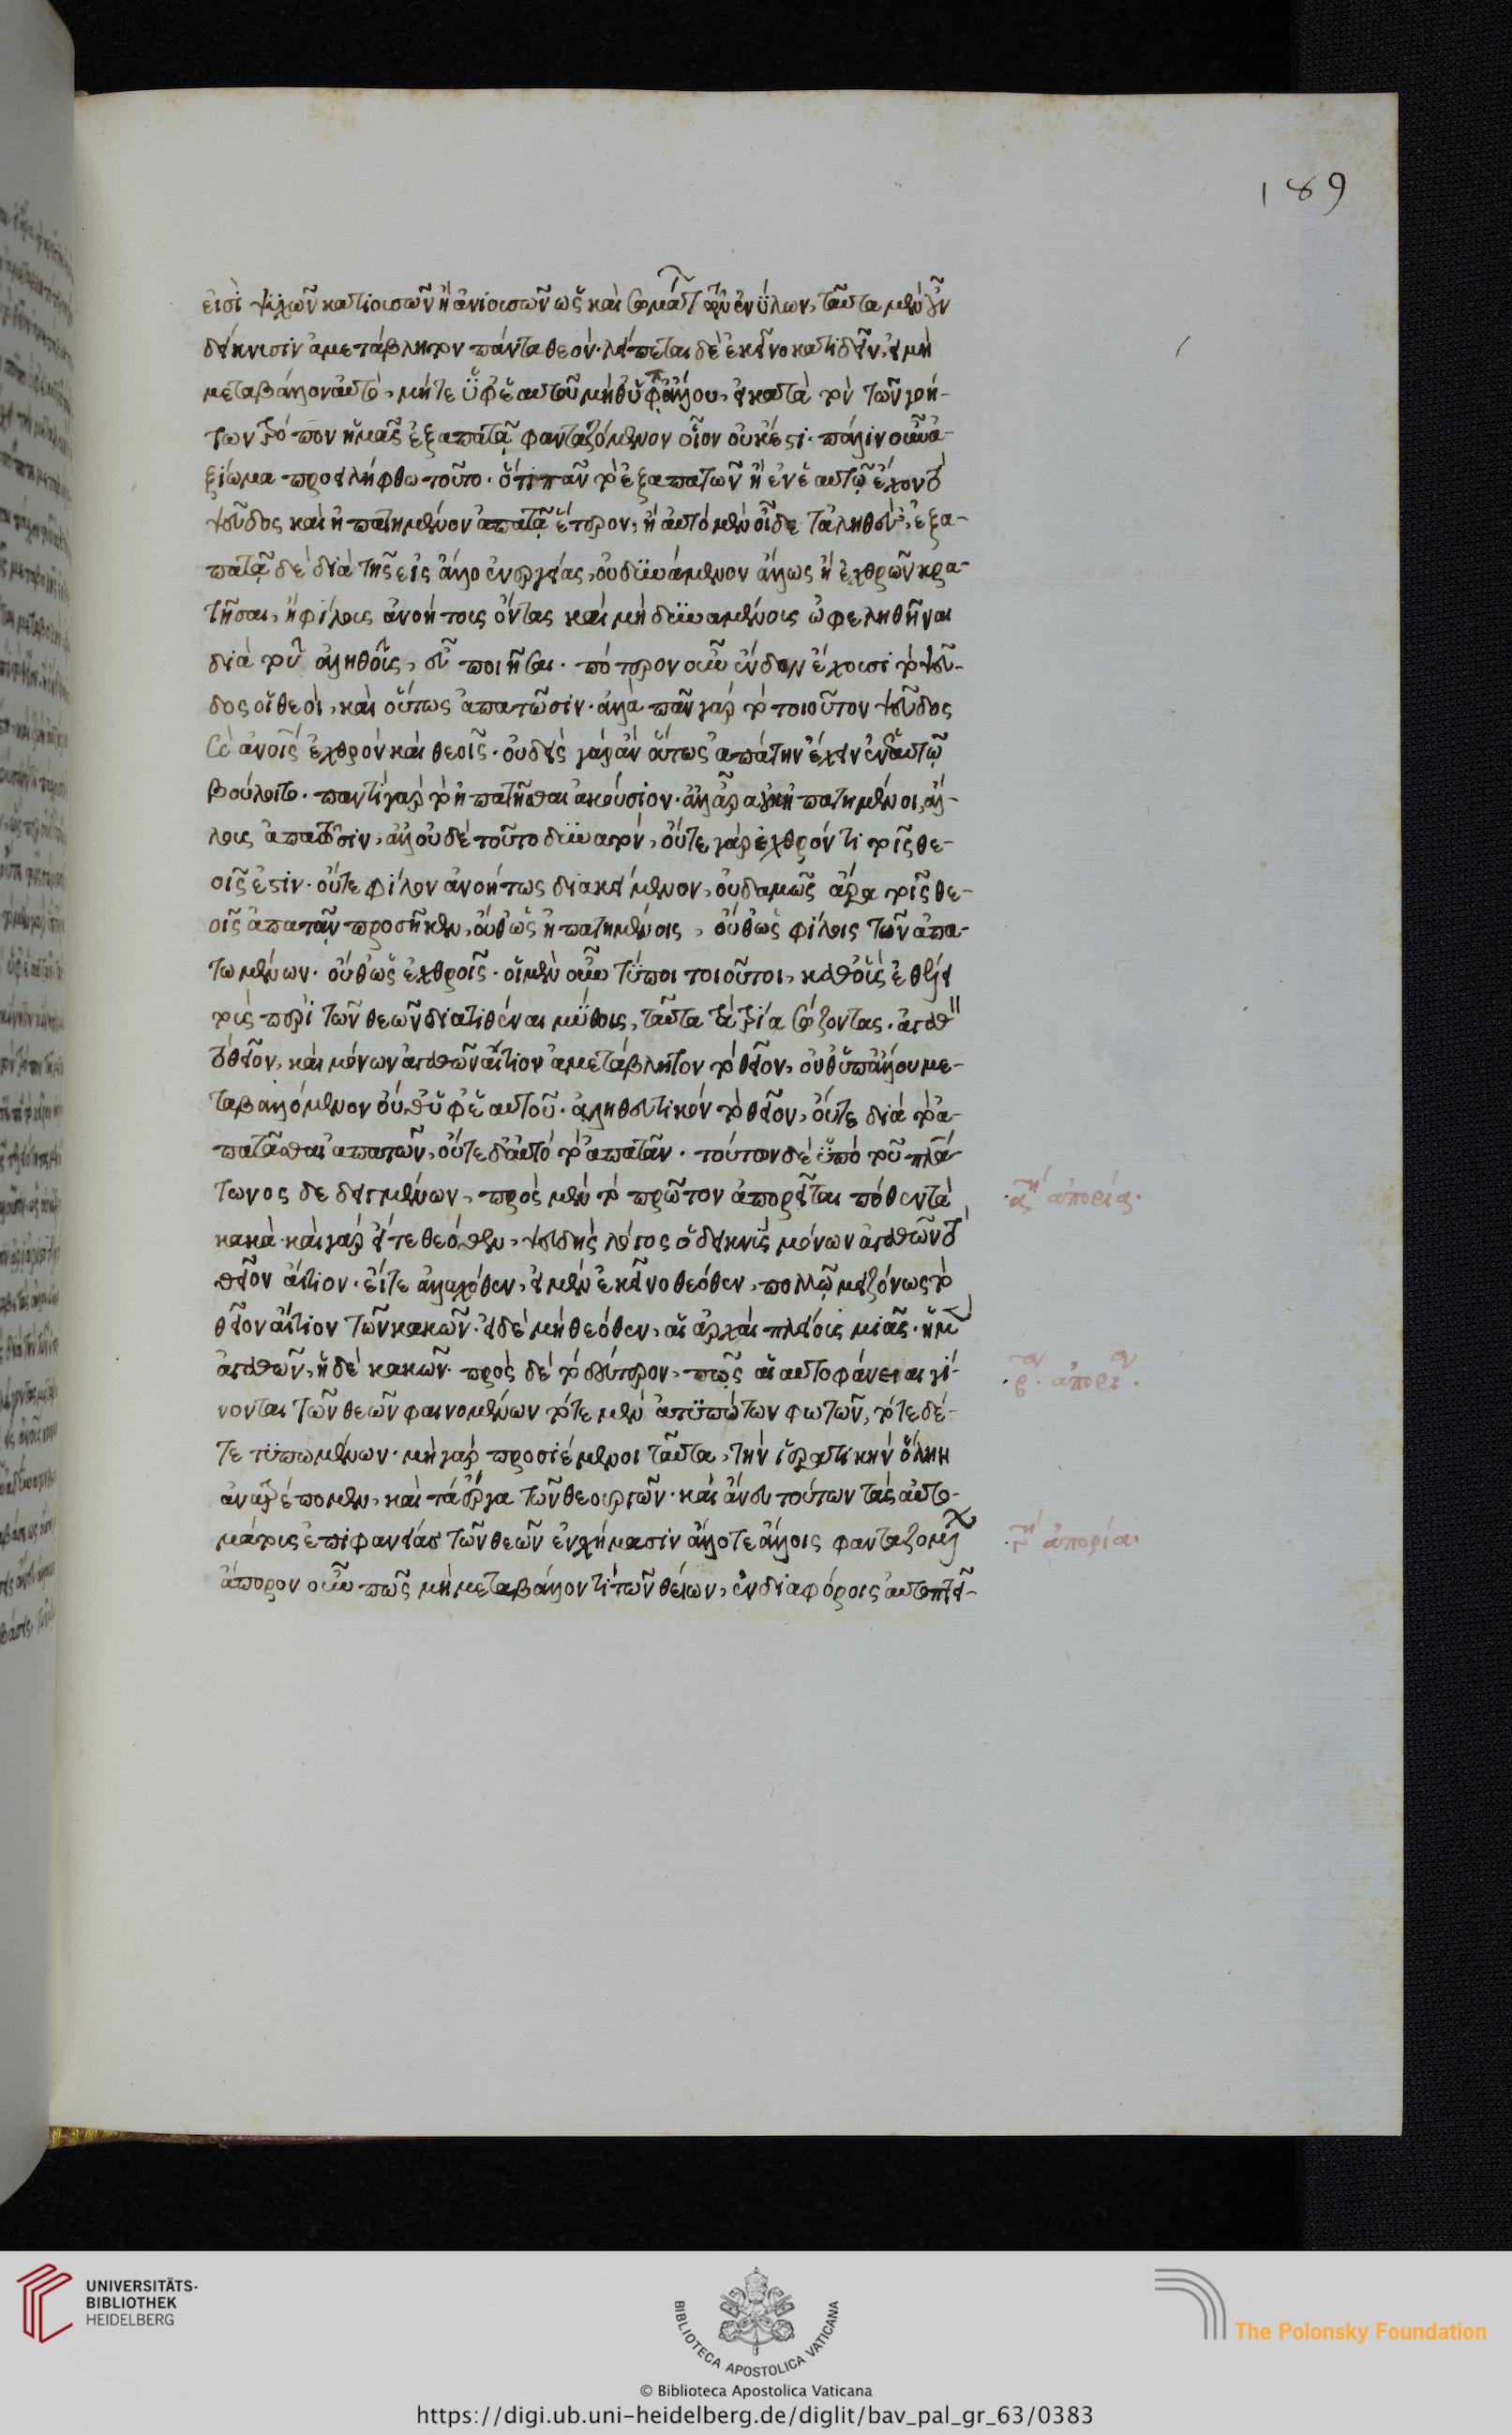 189
εἰσὶ ψυχῶν κατιουσῶν ἢ ἀνιουσῶν ὡς καὶ σωμάτων τῶν ἐνύλων, ταῦτα μὲν οὖν
δείκνυσιν ἀμετάβλητον πάντα θεόν· λείπεται δὲ ἐκεῖνο κατιδεῖν, εἰ μὴ
μεταβάλλον αὐτὸ, μήτε ὑφ' ἑαυτοῦ μήθ' ὑπ' ἄλλου, εἰ κατὰ τὸν τῶν γοή-
των τρόπον ἡμᾶς ἐξαπατᾷ φανταζόμενον οἷον οὐκ ἔστι· πάλιν οὖν ἀ-
ξίωμα προειλήφθω τοῦτο· ὅτι πᾶν τὸ ἐξαπατῶν ἢ ἐν ἑαυτῷ ἔχον τὸ
ψεῦδος καὶ ἠπατημένον ἀπατᾷ ἕτερον, ἢ αὐτὸ μὲν οἶδε τἀληθὲς, ἐξα-
πατᾷ δὲ διὰ τῆς εἰς ἄλλο ἐνεργείας, οὐ δυνάμενον ἄλλως ἢ ἐχθρῶν κρα-
τῆσαι, ἢ φίλους ἀνοήτους ὄντας καὶ μὴ δυναμένους ὠφεληθῆναι
διὰ τοῦ ἀληθοῦς, εὖ ποιῆσαι· πότερον οὖν ἔνδον ἔχουσι τὸ ψεῦ-
δος οἱ θεοὶ, καὶ οὕτως ἀπατῶσιν· ἀλλὰ πᾶν γὰρ τὸ τοιοῦτον ψεῦδος
καὶ ἀνοις ἐχθρὸν καὶ θεοῖς· οὐδεὶς γὰρ ἂν οὕτως ἀπάτην ἔχειν ἐν ἑαυτῷ
βούλοιτο· παντὶ γὰρ τὸ ἠπατῆσθαι ἀκούσιον· ἀλλ' ἆρα οὐκ ἠπατημένοι, ἄλ-
λους ἀπατῶσιν, ἀλλ' οὐδὲ τοῦτο δυνατὸν, οὔτε γὰρ ἐχθρόν τι τοῖς θε-
οῖς ἐστιν· οὔτε φίλον ἀνοήτως διακείμενον, οὐδαμῶς ἄρα τοῖς θε-
οῖς ἀπατᾶν προσῆκεν, οὔθ' ὡς ἠπατημένοις, οὔθ' ὡς φίλοις τῶν ἀπα-
τωμένων· οὔθ' ὡς ἐχθροῖς· οἱ μὲν οὖν τύποι τοιοῦτοι, καθ' οὓς ἐθέλει
τοὺς περὶ τῶν θεῶν διατιθέναι μύθους, ταῦτα τὰ τρία σῴζοντας· ἀγαθὸν
τὸ θεῖον, καὶ μόνων ἀγαθῶν αἴτιον ἀμετάβλητον τὸ θεῖον, οὔθ' ὑπ' ἄλλου με-
ταβαλλόμενον οὔθ' ὑφ' ἑαυτοῦ· ἀληθευτικὸν τὸ θεῖον, οὔτε διὰ τὸ ἀ-
πατᾶσθαι ἀπατῶν, οὔτε δι' αὐτὸ τὸ ἀπατᾶν· τούτων δὲ ὑπὸ τοῦ πλά-
τωνος δεδειγμένων, πρὸς μὲν τὸ πρῶτον ἀπορεῖται πόθεν τὰ
κακά· καὶ γὰρ εἴτε θεόθεν, ψευδὴς λόγος ὁ δεικνὺς μόνων ἀγαθῶν τὸ
θεῖον αἴτιον· εἴτε ἀλλαχόθεν, εἰ μὲν ἐκεῖνο θεόθεν, πολλῷ μειζόνως τὸ
θεῖον αἴτιον τῶν κακῶν· εἰ δὲ μὴ θεόθεν, αἱ ἀρχαὶ πλείους μιᾶς· ἡ μὲν
ἀγαθῶν, ἡ δὲ κακῶν· πρὸς δὲ τὸ δεύτερον, πῶς αἱ αὐτοφάνειαι γί-
νονται τῶν θεῶν φαινομένων τότε μὲν ἀτυπώτων φωτῶν, τότε δέ-
τε τυπωμένων· μὴ γὰρ προσιέμενοι ταῦτα, τὴν ἱερατικὴν ὅλην
ἀνατρέπομεν, καὶ τὰ ἔργα τῶν θεουργῶν· καὶ ἄνευ τούτων τὰς αὐτο-
μάτους ἐπιφανείας τῶν θεῶν ἐν σχήμασιν ἄλλοτε ἄλλοις φανταζομένων
ἄπορον οὖν πῶς μὴ μεταβάλλοντι τῶν θείων, ἐν διαφόροις αὐτοπτεῖ-
·αη ἀπορία·
·β· ἀπορί·
·γη ἀπορία·
UNIVERSITÄTS-
BIBLIOTHEK
HEIDELBERG
BIBLIOTECA APOSTOLICA VATICANA
The Polonsky Foundation
© Biblioteca Apostolica Vaticana
https://digi.ub.uni-heidelberg.de/diglit/bav_pal_gr_63/0383